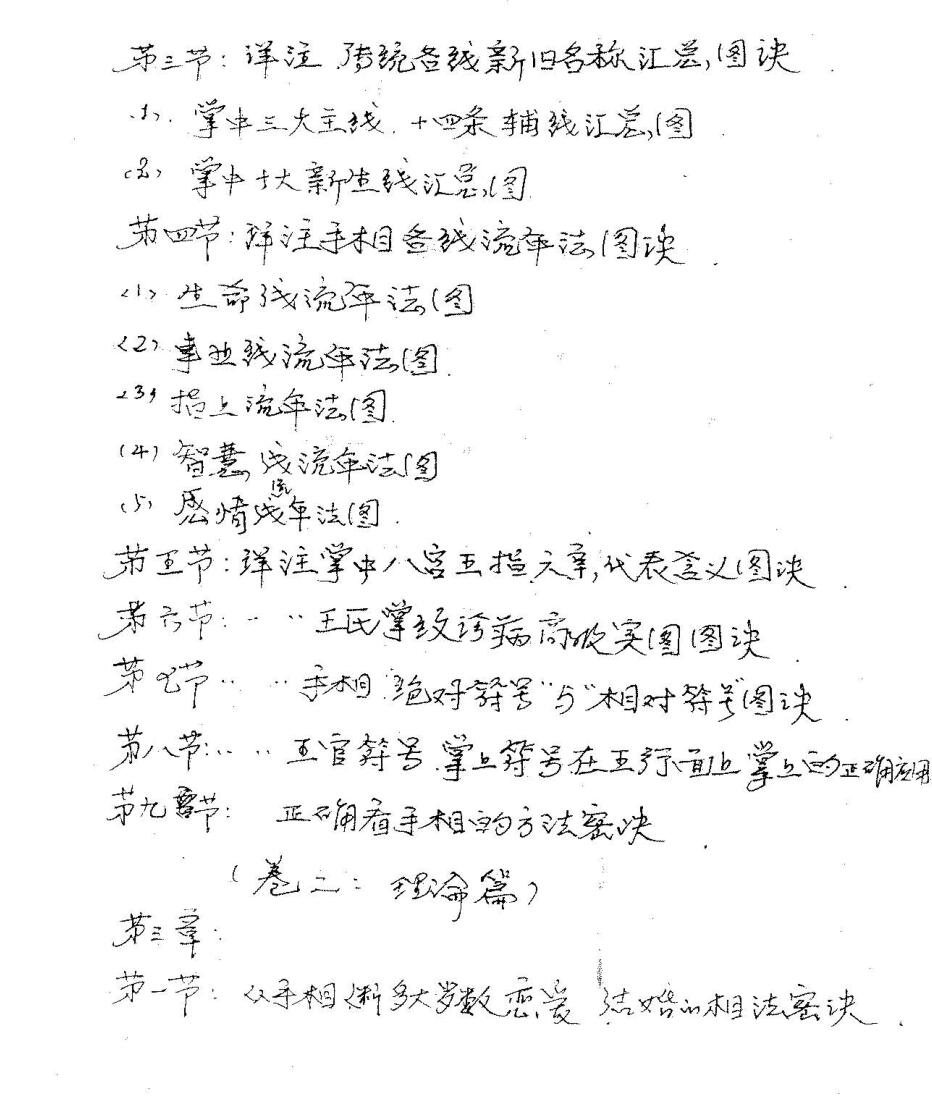 第三节：详注 传统各线新旧名称汇总,(图诀
(1). 掌中三大主线. 十四条辅线汇总,(图
(2) 掌中十大新生线汇总,(图
第四节：详注手相各线流年法,(图诀
(1) 生命线流年法,(图
(2) 事业线流年法(图
(3) 指上流年法(图
(4) 智慧线流年法(图
(5) 感情线流年法图
第五节：详注掌中八宫五指,六亲,代表含义(图诀
第六节：‥ ‥ 王氏掌纹诊病高级实图图诀
第七节 ‥ ‥ 手相“绝对符号”与“相对符号”图诀
第八节：‥ ‥ 五官符号.掌上符号在五行面上掌上的正确应用
第九节： 正确看手相的方法密诀
(卷二：理论篇)
第三章：
第一节：从手相断多大岁数恋爱 结婚的相法密诀